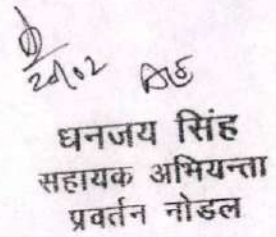 20/02 AE
धनजय सिंह
सहायक अभियन्ता
प्रवर्तन नोडल